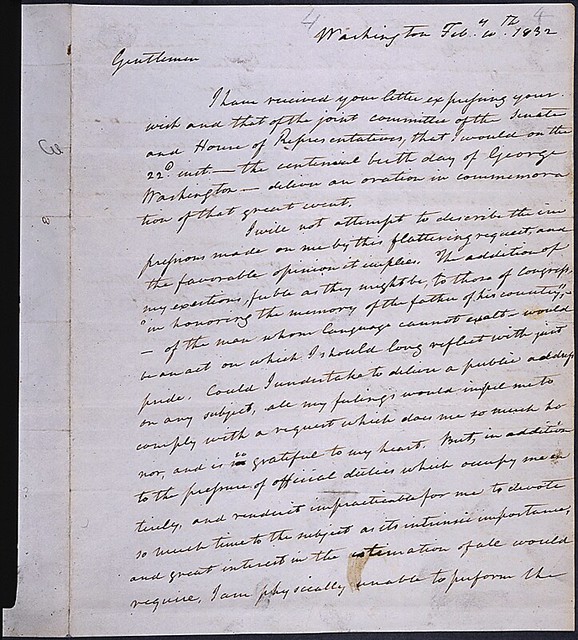 4 4
Washington Feb.y 10.th 1832
Gentlemen
I have received your letter expressing your
wish and that of the joint committee of the Senate
and House of Representatives, that I would on the
22d inst — the centennial birth day of George
Washington — deliver an oration in commemora
tion of that great event.
I will not attempt to describe the im
pressions made on me by this flattering request, and
the favorable opinion it implies. The addition of
my exertions, feble as they might be, to those of Congress,
"in honoring the memory of the father of his country",
— of the man whom language cannot exalt — would
be an act on which I should long reflect with just
pride. Could I undertake to deliver a public address
on any subject, all my feelings would impel me to
comply with a request which does me so much ho
nor, and is so grateful to my heart. But, in addition
to the pressure of official duties which occupy me en
tirely, and render it impracticable for me to devote
so much time to the subject as its intrinsic importance,
and great interest in the estimation of all would
require, I am physically unable to perform the